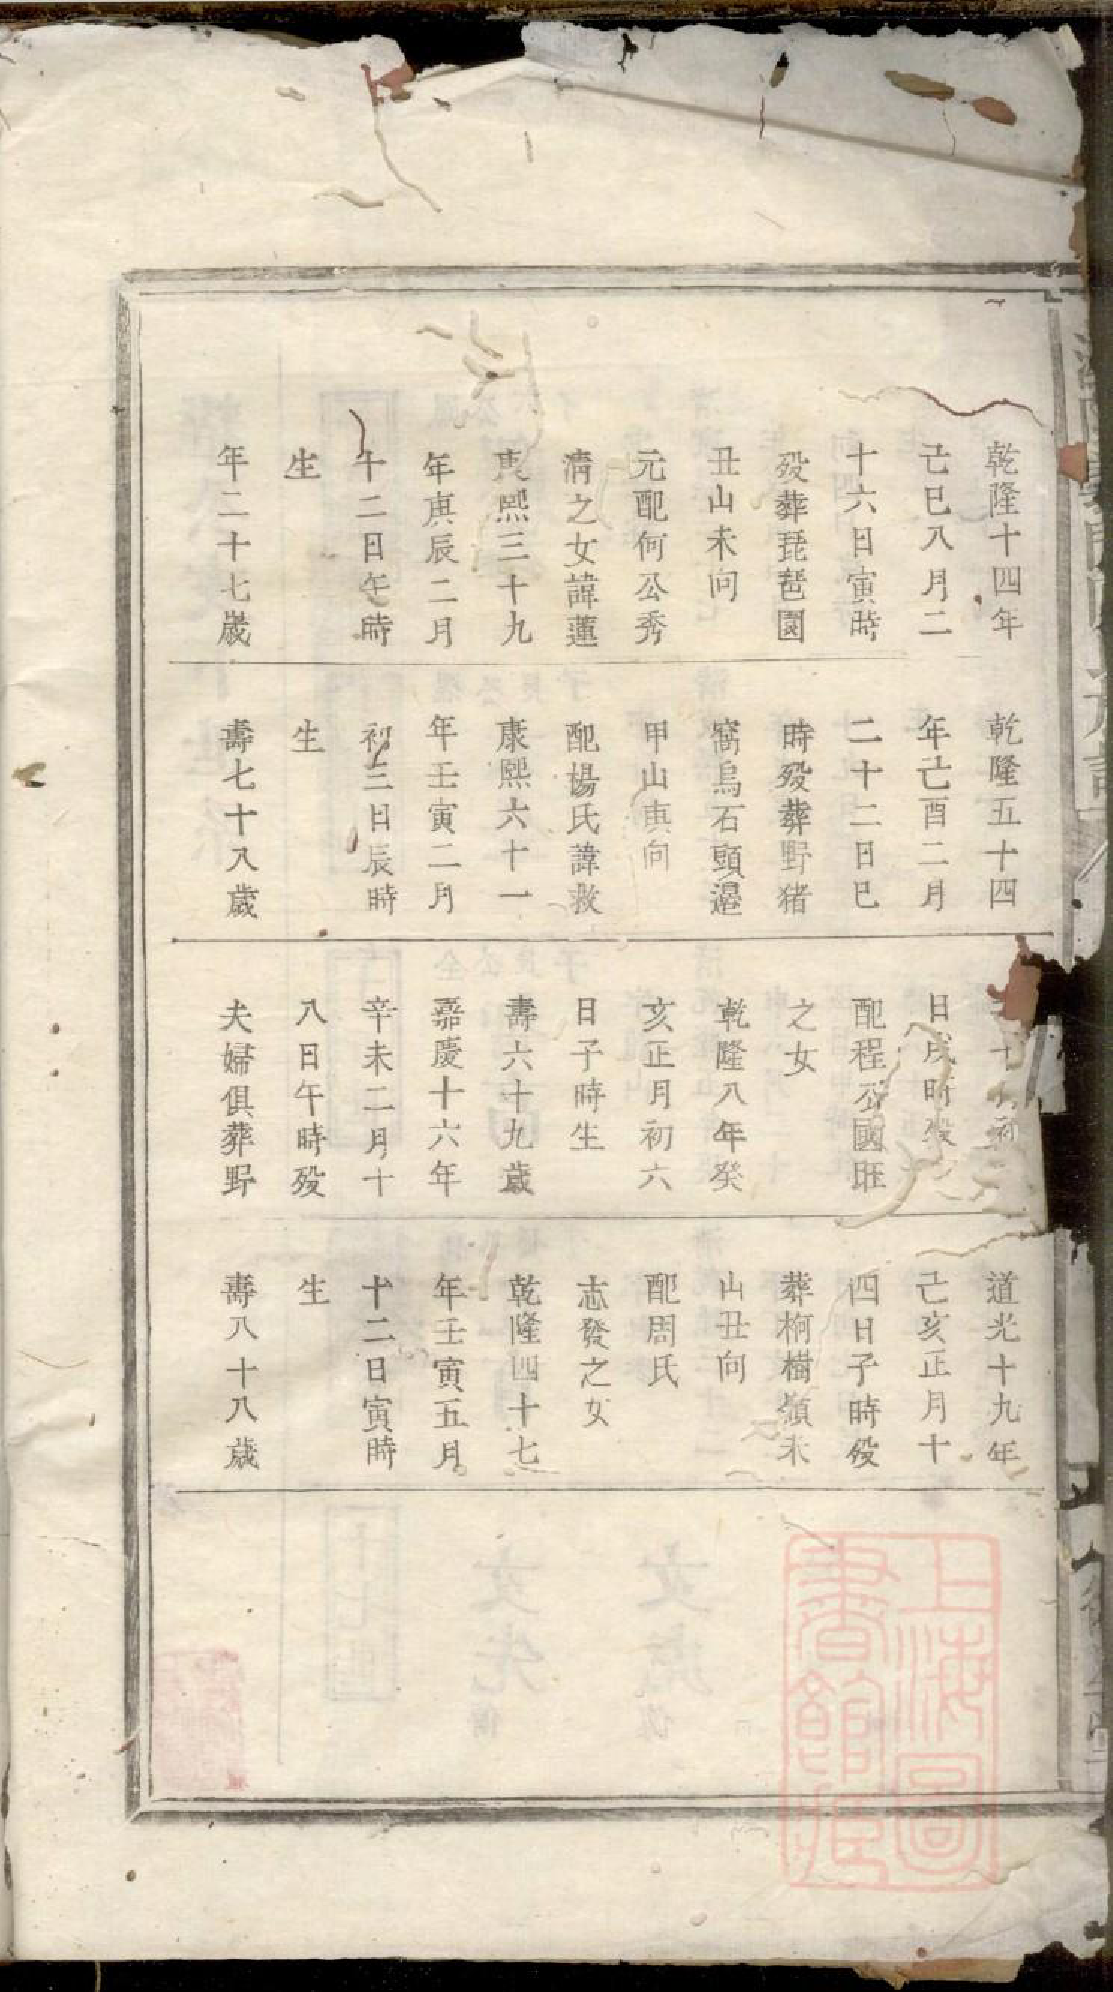 乾隆十四年
己巳八月二
十六日寅時
歿葬琵琶園
丑山未向
元配何公秀
清之女諱蓮
康熙三十九
年庚辰二月
十二日午時
生
年二十七歲
乾隆五十四
年己酉二月
二十二日巳
時歿葬野猪
窩烏石頭邉
甲山庚向
配楊氏諱救
康熙六十一
年壬寅二月
初三日辰時
生
壽七十八歲
日戌時歿
配程公國旺
之女
乾隆八年癸
亥正月初六
日子時生
壽六十九歲
嘉慶十六年
辛未二月十
八日午時歿
夫婦俱葬野
道光十九年
己亥正月十
四日子時歿
葬桐樹嶺未
山丑向
配周氏
志發之女
乾隆四十七
年壬寅五月
十二日寅時
生
壽八十八歲
上海圖
書館藏